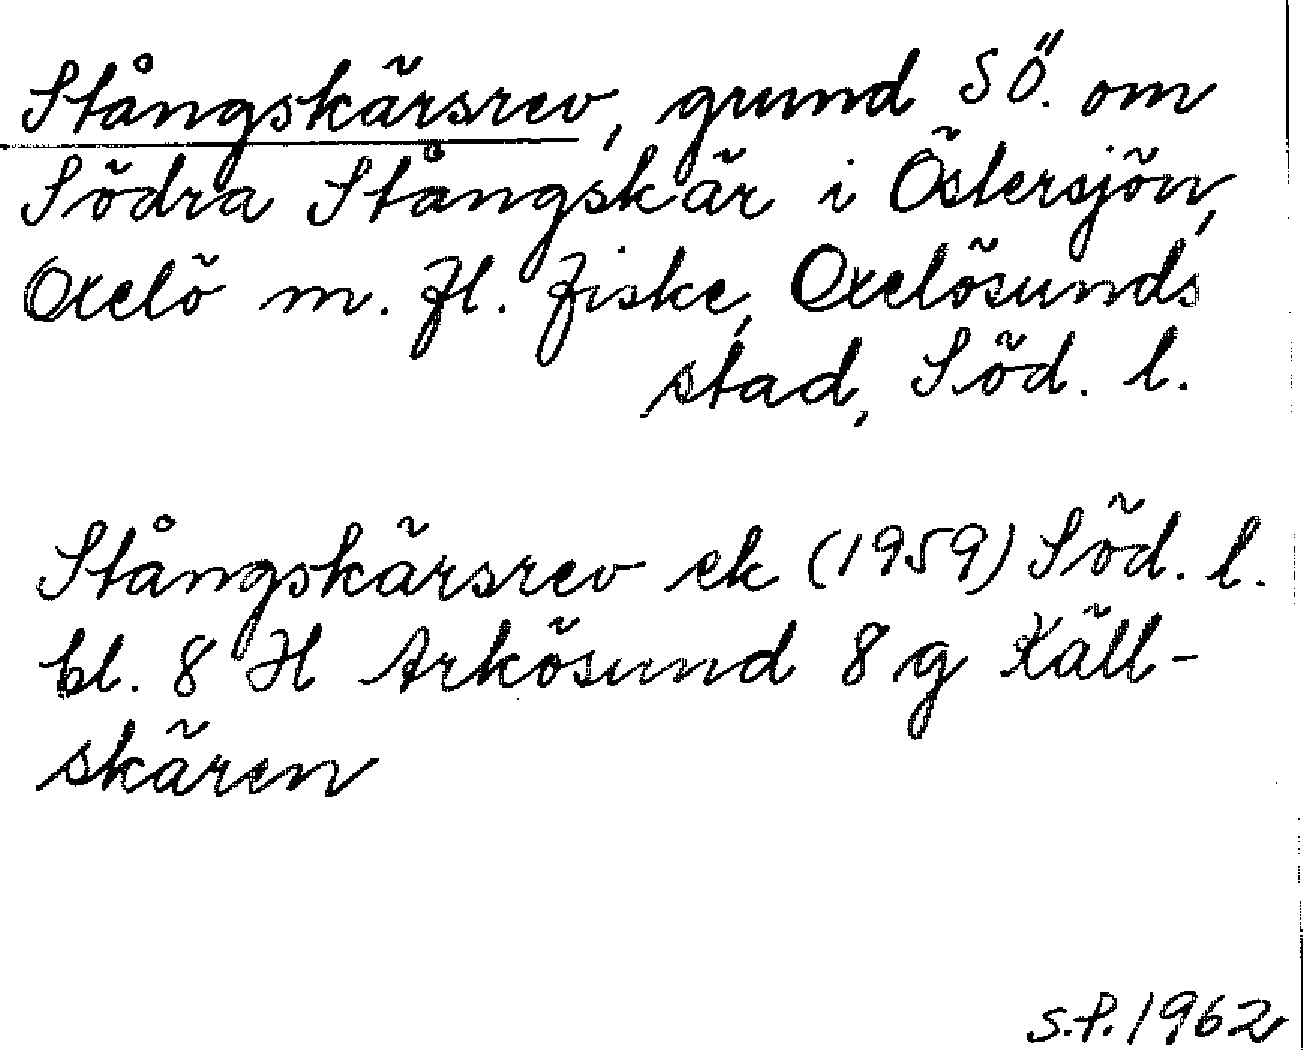 Stångskärsrev, grund SÖ. om
Södra Stångskär i Östersjön,
Oxelö m. fl. fiske, Oxelösunds
stad, Söd. l.
Stångskärsrev ek (1959) Söd. l.
bl. 8 H Arkösund 8 g Käll-
skären
S.P. 1962